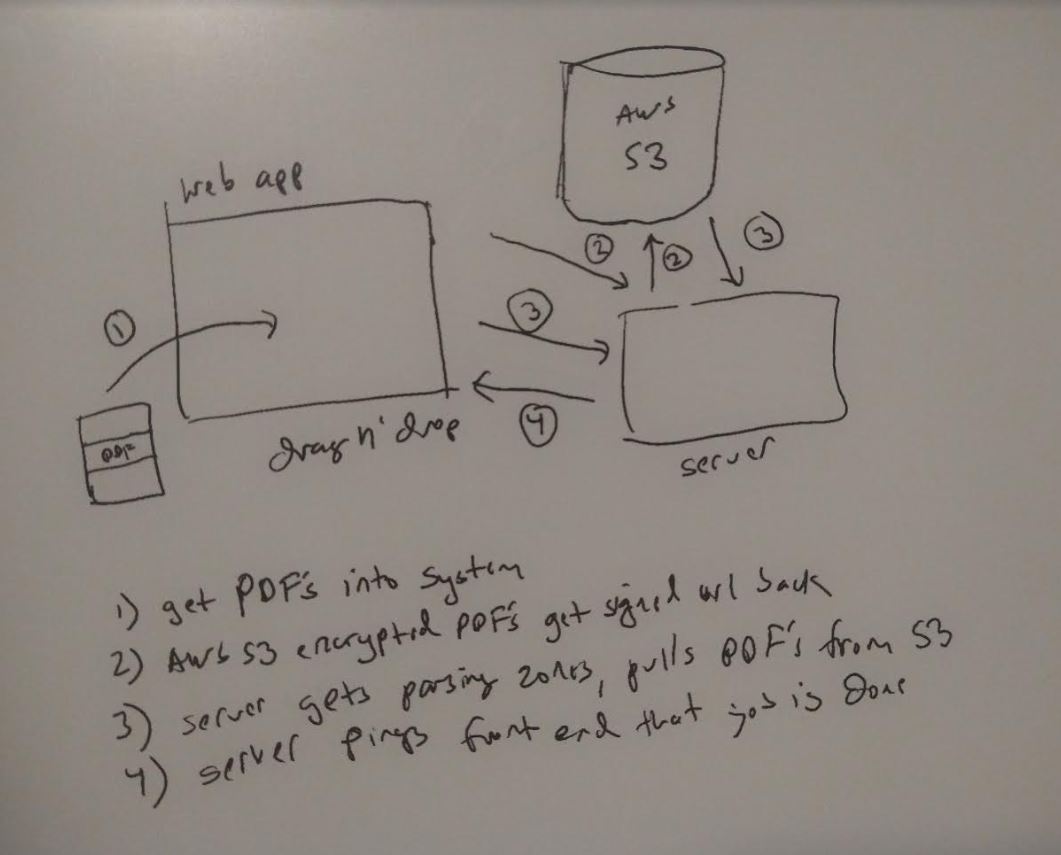 AWS
S3
web app
②
②
③
①
③
④
PDF
drag n' drop
server
1) get PDF's into system
2) AWS S3 encrypted PDF's get signed url back
3) server gets parsing zones, pulls PDF's from S3
4) server pings front end that job is done